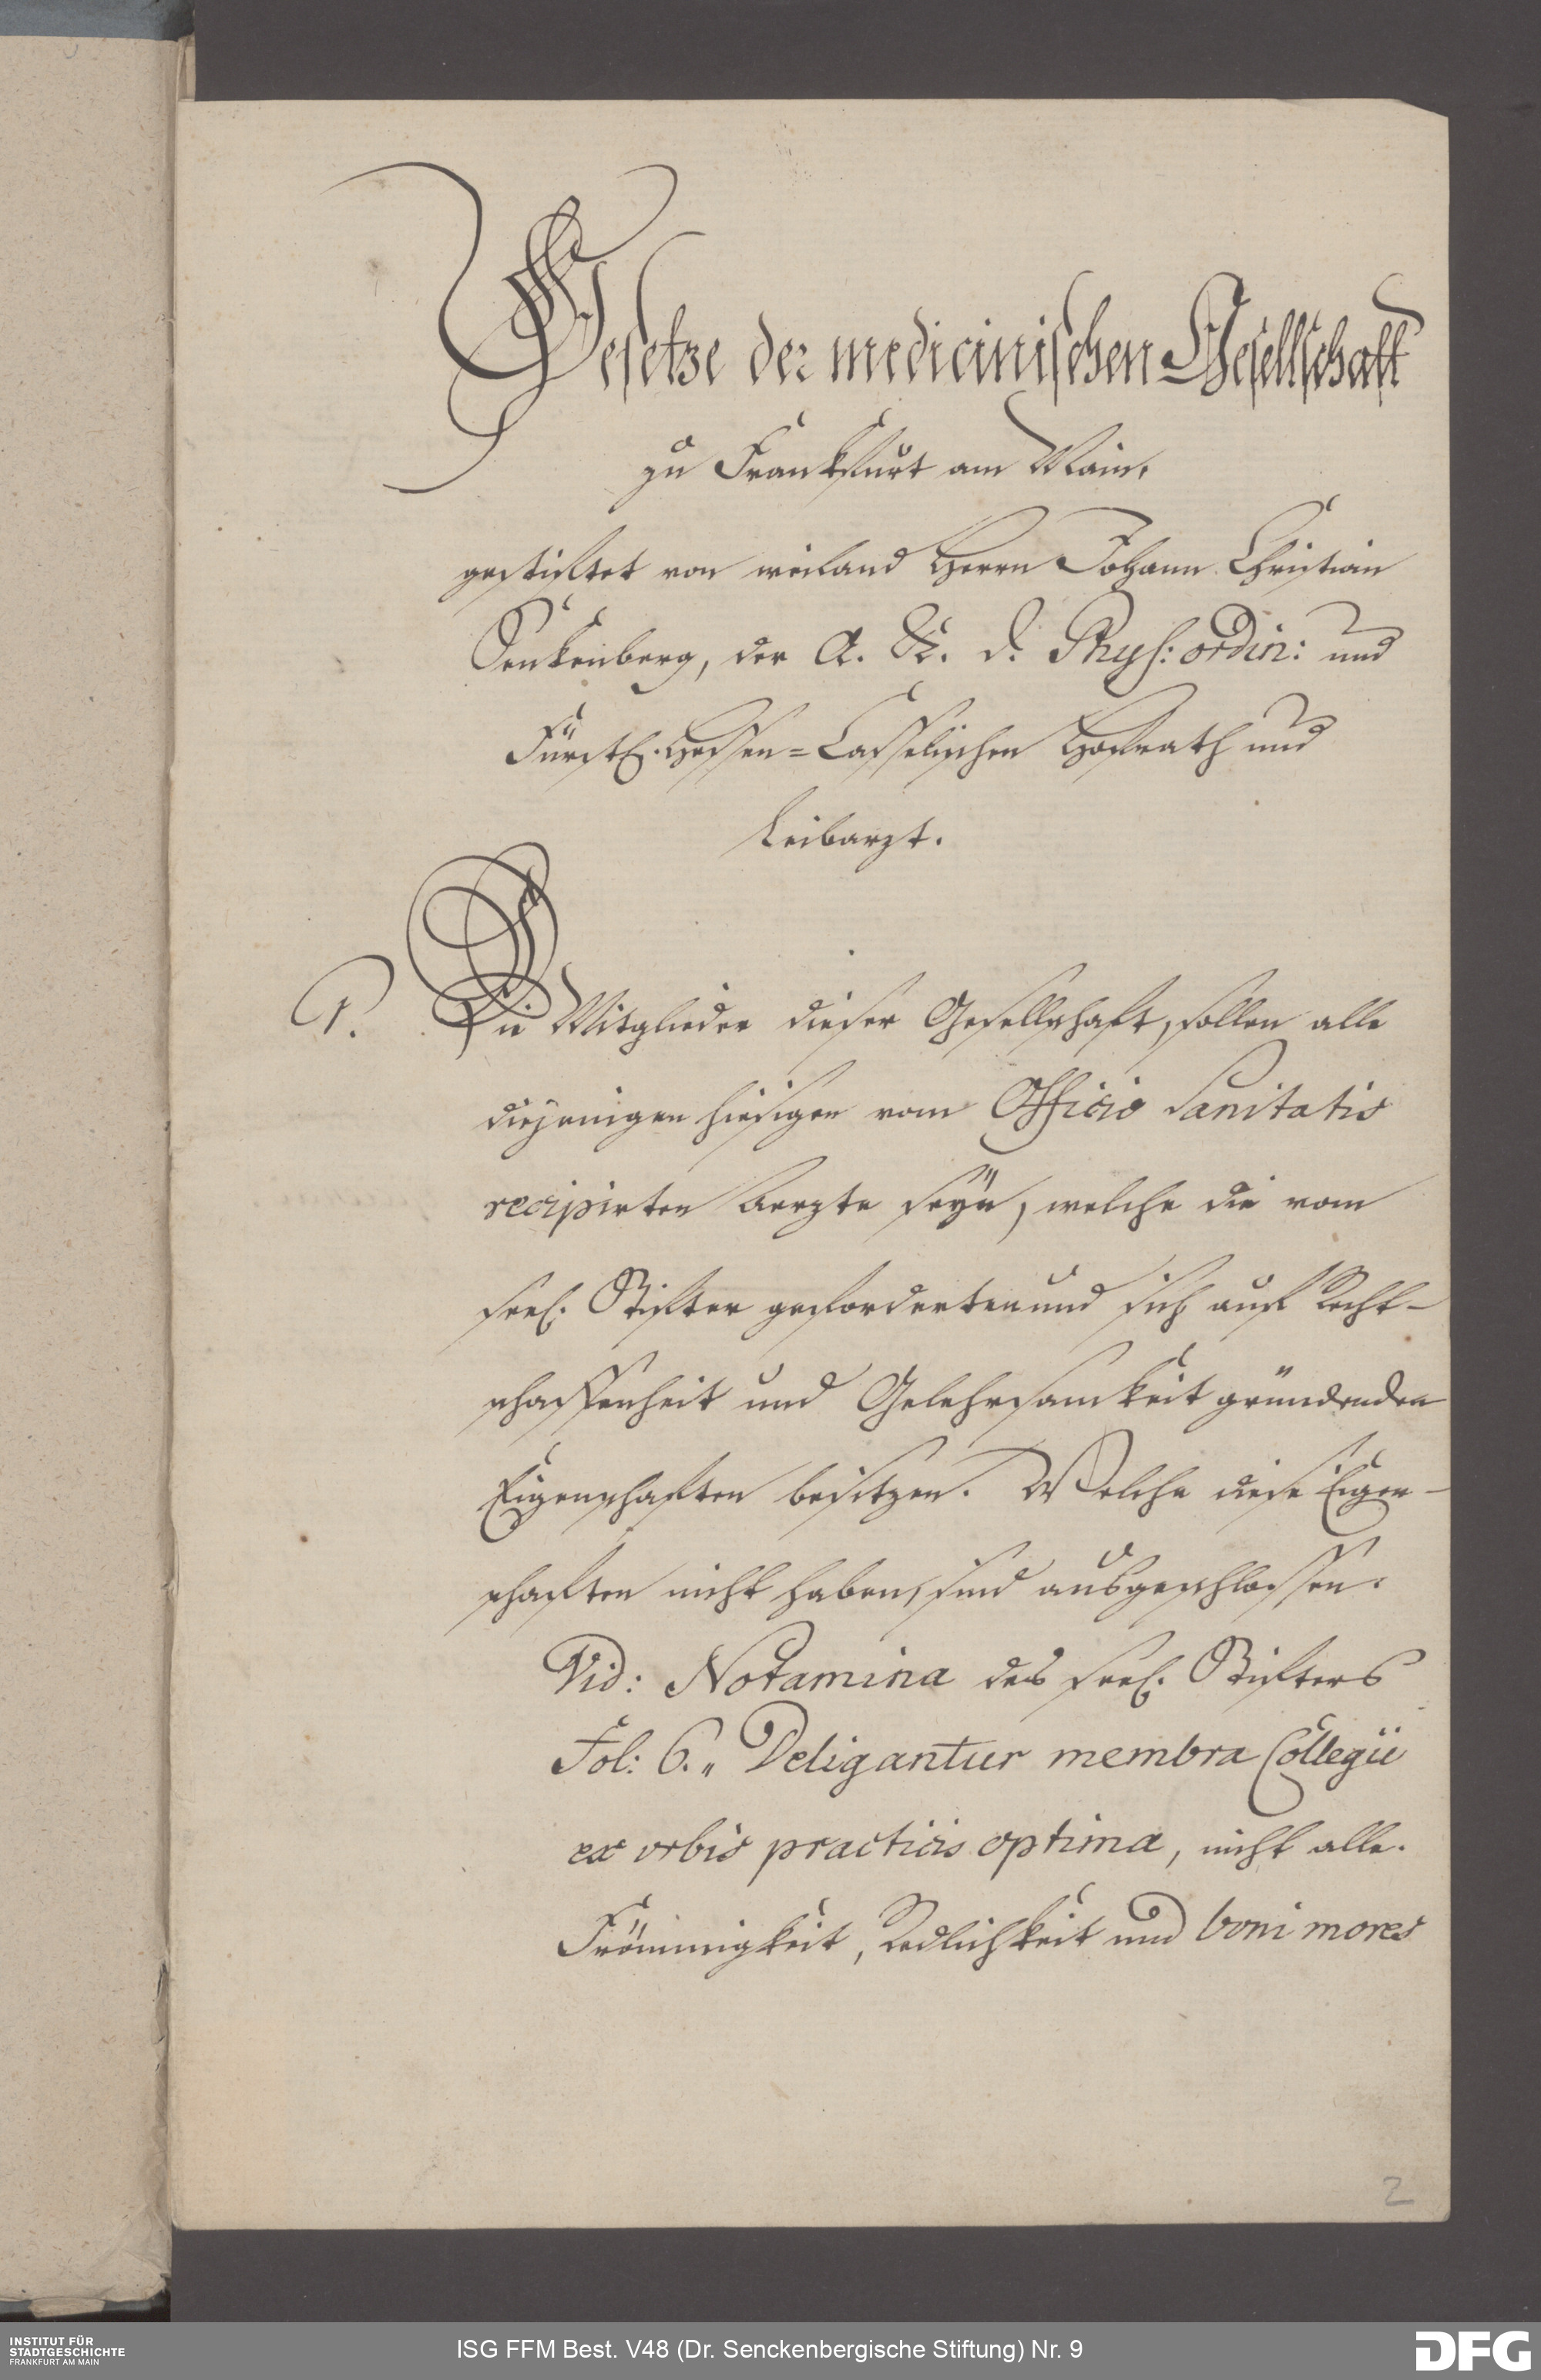 Gesetze der medicinischen Gesellschaft
zu Frankfurt am Main,
gestiftet von weiland Herrn Johann Christian
Senkenberg, der A. K. D. Phys: ordin: und
Fürstl. Hessen=Casselischen Hofrath und
Leibarzt.
1. Die Mitglieder dieser Gesellschaft, sollen alle
diejenigen hiesigen vom Officio Sanitatis
recipirten Aerzte seÿn, welche die vom
seel. Stifter geforderten und sich auf Recht-
schaffenheit und Gelehrsamkeit gründenden
Eigenschaften besitzen. Welche diese Eigen-
schaften nicht haben, sind ausgeschlossen.
Vid: Notamina des seel. Stifters
Fol: 6. „ Deligantur membra Collegii
ex orbis practicis optima, nicht alle.
Frömmigkeit, Redlichkeit und boni mores
2
INSTITUT FÜR
STADTGESCHICHTE
FRANKFURT AM MAIN
ISG FFM Best. V48 (Dr. Senckenbergische Stiftung) Nr. 9
DFG